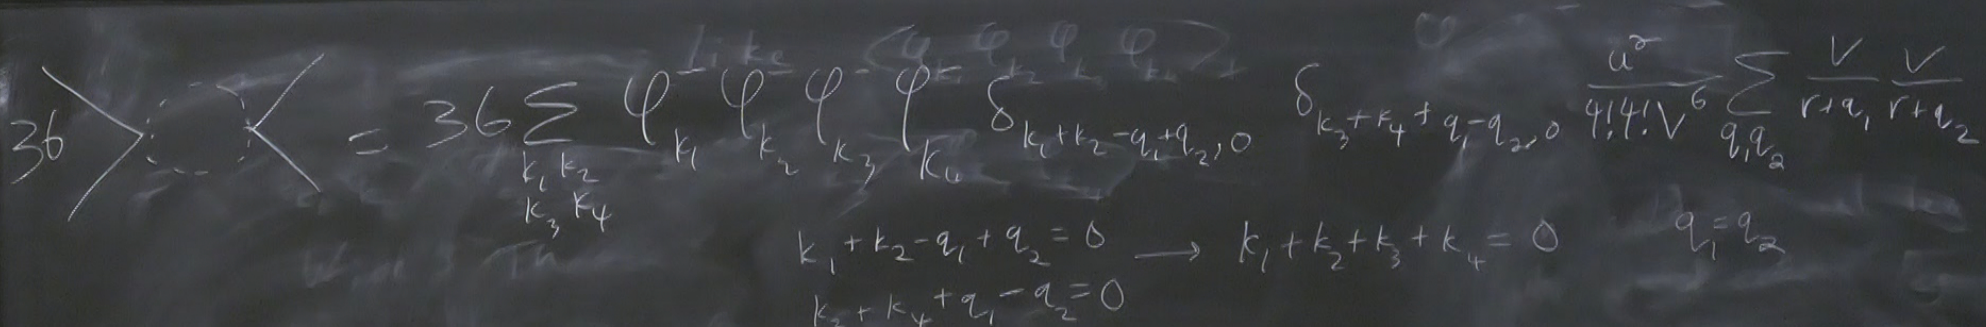 like
36 = 36 ∑_{k_1 k_2 k_3 k_4} φ_{k_1} φ_{k_2} φ_{k_3} φ_{k_4} δ_{k_1+k_2-q_1+q_2,0} δ_{k_3+k_4+q_1-q_2,0} \frac{u^2}{4!4!V^6} ∑_{q_1q_2} \frac{V}{r+q_1} \frac{V}{r+q_2}
k_1+k_2-q_1+q_2=0 → k_1+k_2+k_3+k_4=0 q_1=q_2
k_3+k_4+q_1-q_2=0